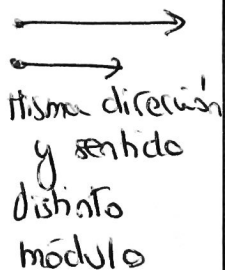 Misma dirección
y sentido
distinto
módulo